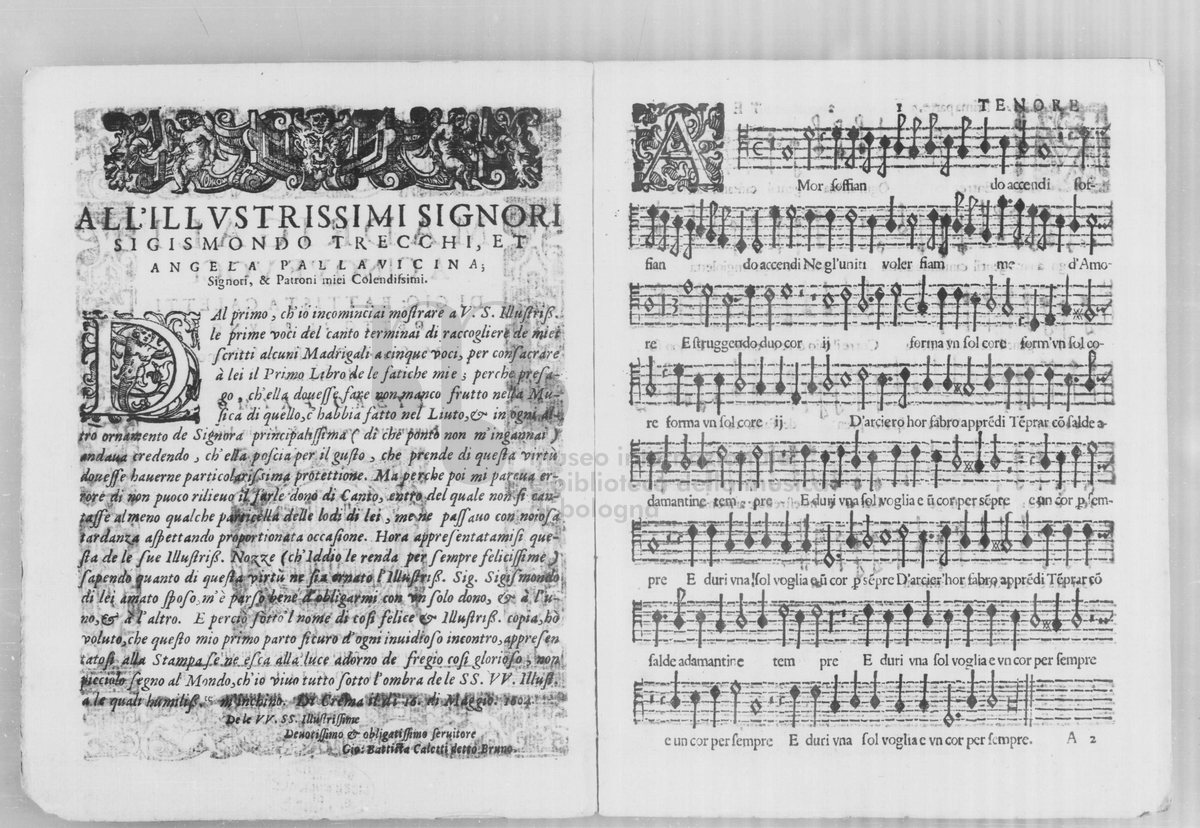 ALL'ILLVSTRISSIMI SIGNORI
SIGISMONDO TRECCHI, ET
ANGELA PALLAVICINA;
Signori, & Patroni miei Colendissimi.
DAl primo, ch'io incominciai mostrare a V. S. Illustriss.
le prime voci del canto terminai di raccogliere de miei
scritti alcuni Madrigali a cinque voci, per consacrare
à lei il Primo Libro de le fatiche mie; perche presa-
go, ch'ella douesse fare non manco frutto nella Mu-
sica di quello, c'habbia fatto nel Liuto, & in ogni al-
tro ornamento de Signora principalissima (di che ponto non m'ingannai)
andaua credendo, ch'ella poscia per il gusto, che prende di questa virtù
douesse hauerne particolarissima protettione. Ma perche poi mi pareua er-
rore di non puoco rilieuo il farle dono di Canto, entro del quale non si can-
tasse almeno qualche particella delle lodi di lei, me ne passauo con noiosa
tardanza aspettando proportionata occasione. Hora appresentatamisi que-
sta de le sue Illustriss. Nozze (ch'Iddio le renda per sempre felicissime)
sapendo quanto di questa virtù ne sia ornato l'Illustriss. Sig. Sigismondo
di lei amato sposo, m'è parso bene d'obligarmi con vn solo dono, & à l'u-
no, & à l'altro. E perciò sotto'l nome di così felice & Illustriss. copia, hò
voluto, che questo mio primo parto sicuro d'ogni inuidioso incontro, appresen
tatosi alla Stampa se ne esca alla luce adorno de fregio così glorioso, non
picciolo segno al Mondo, ch'io viuo tutto sotto l'ombra de le SS. VV. Illust.
a le quali humiliss.te m'inchino. Di Crema il dì 16. di Maggio. 1604.
De le VV. SS. Illustrissime
Deuotissimo & obligatissimo seruitore
Gio: Battista Caletti detto Bruno.
1 TENORE
AMor soffian do accendi sof-
fian do accendi Ne gl'uniti voler fiam me d'Amo-
re E struggendo duo cor ij forma vn sol core form' vn sol co-
re forma vn sol core ij. D'arciero hor fabro apprēdi Tēprar cō salde a-
damantine tem pre E duri vna sol voglia e ū cor per sēpre e un cor p sem-
pre E duri vna sol voglia e ū cor p sēpre D'arcier'hor fabro apprēdi Tēprar cō
salde adamantine tem pre E duri vna sol voglia e vn cor per sempre
e un cor per sempre E duri vna sol voglia e vn cor per sempre. A 2